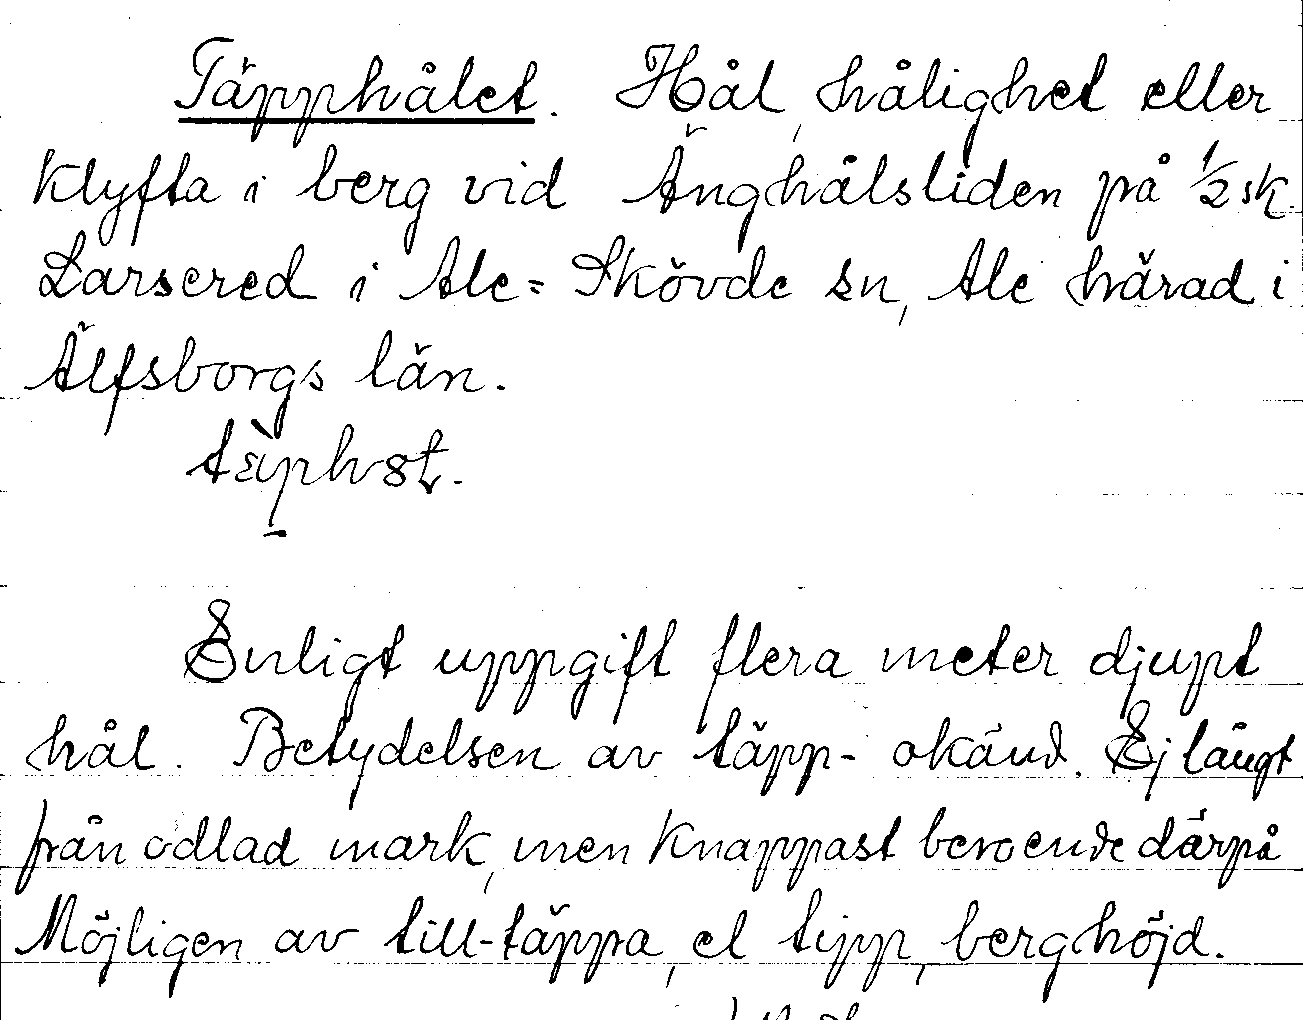 Täpphålet. Hål, hålighet eller
klyfta i berg vid Änghålsliden på 1/2 sk.
Larsered i Ale-Skövde sn, Ale härad i
Älfsborgs län.
Enligt uppgift flera meter djupt
hål. Betydelsen av täpp- okänd. Ej långt
från odlad mark, men knappast beroende därpå
Möjligen av till-täppa, el tipp, berghöjd.